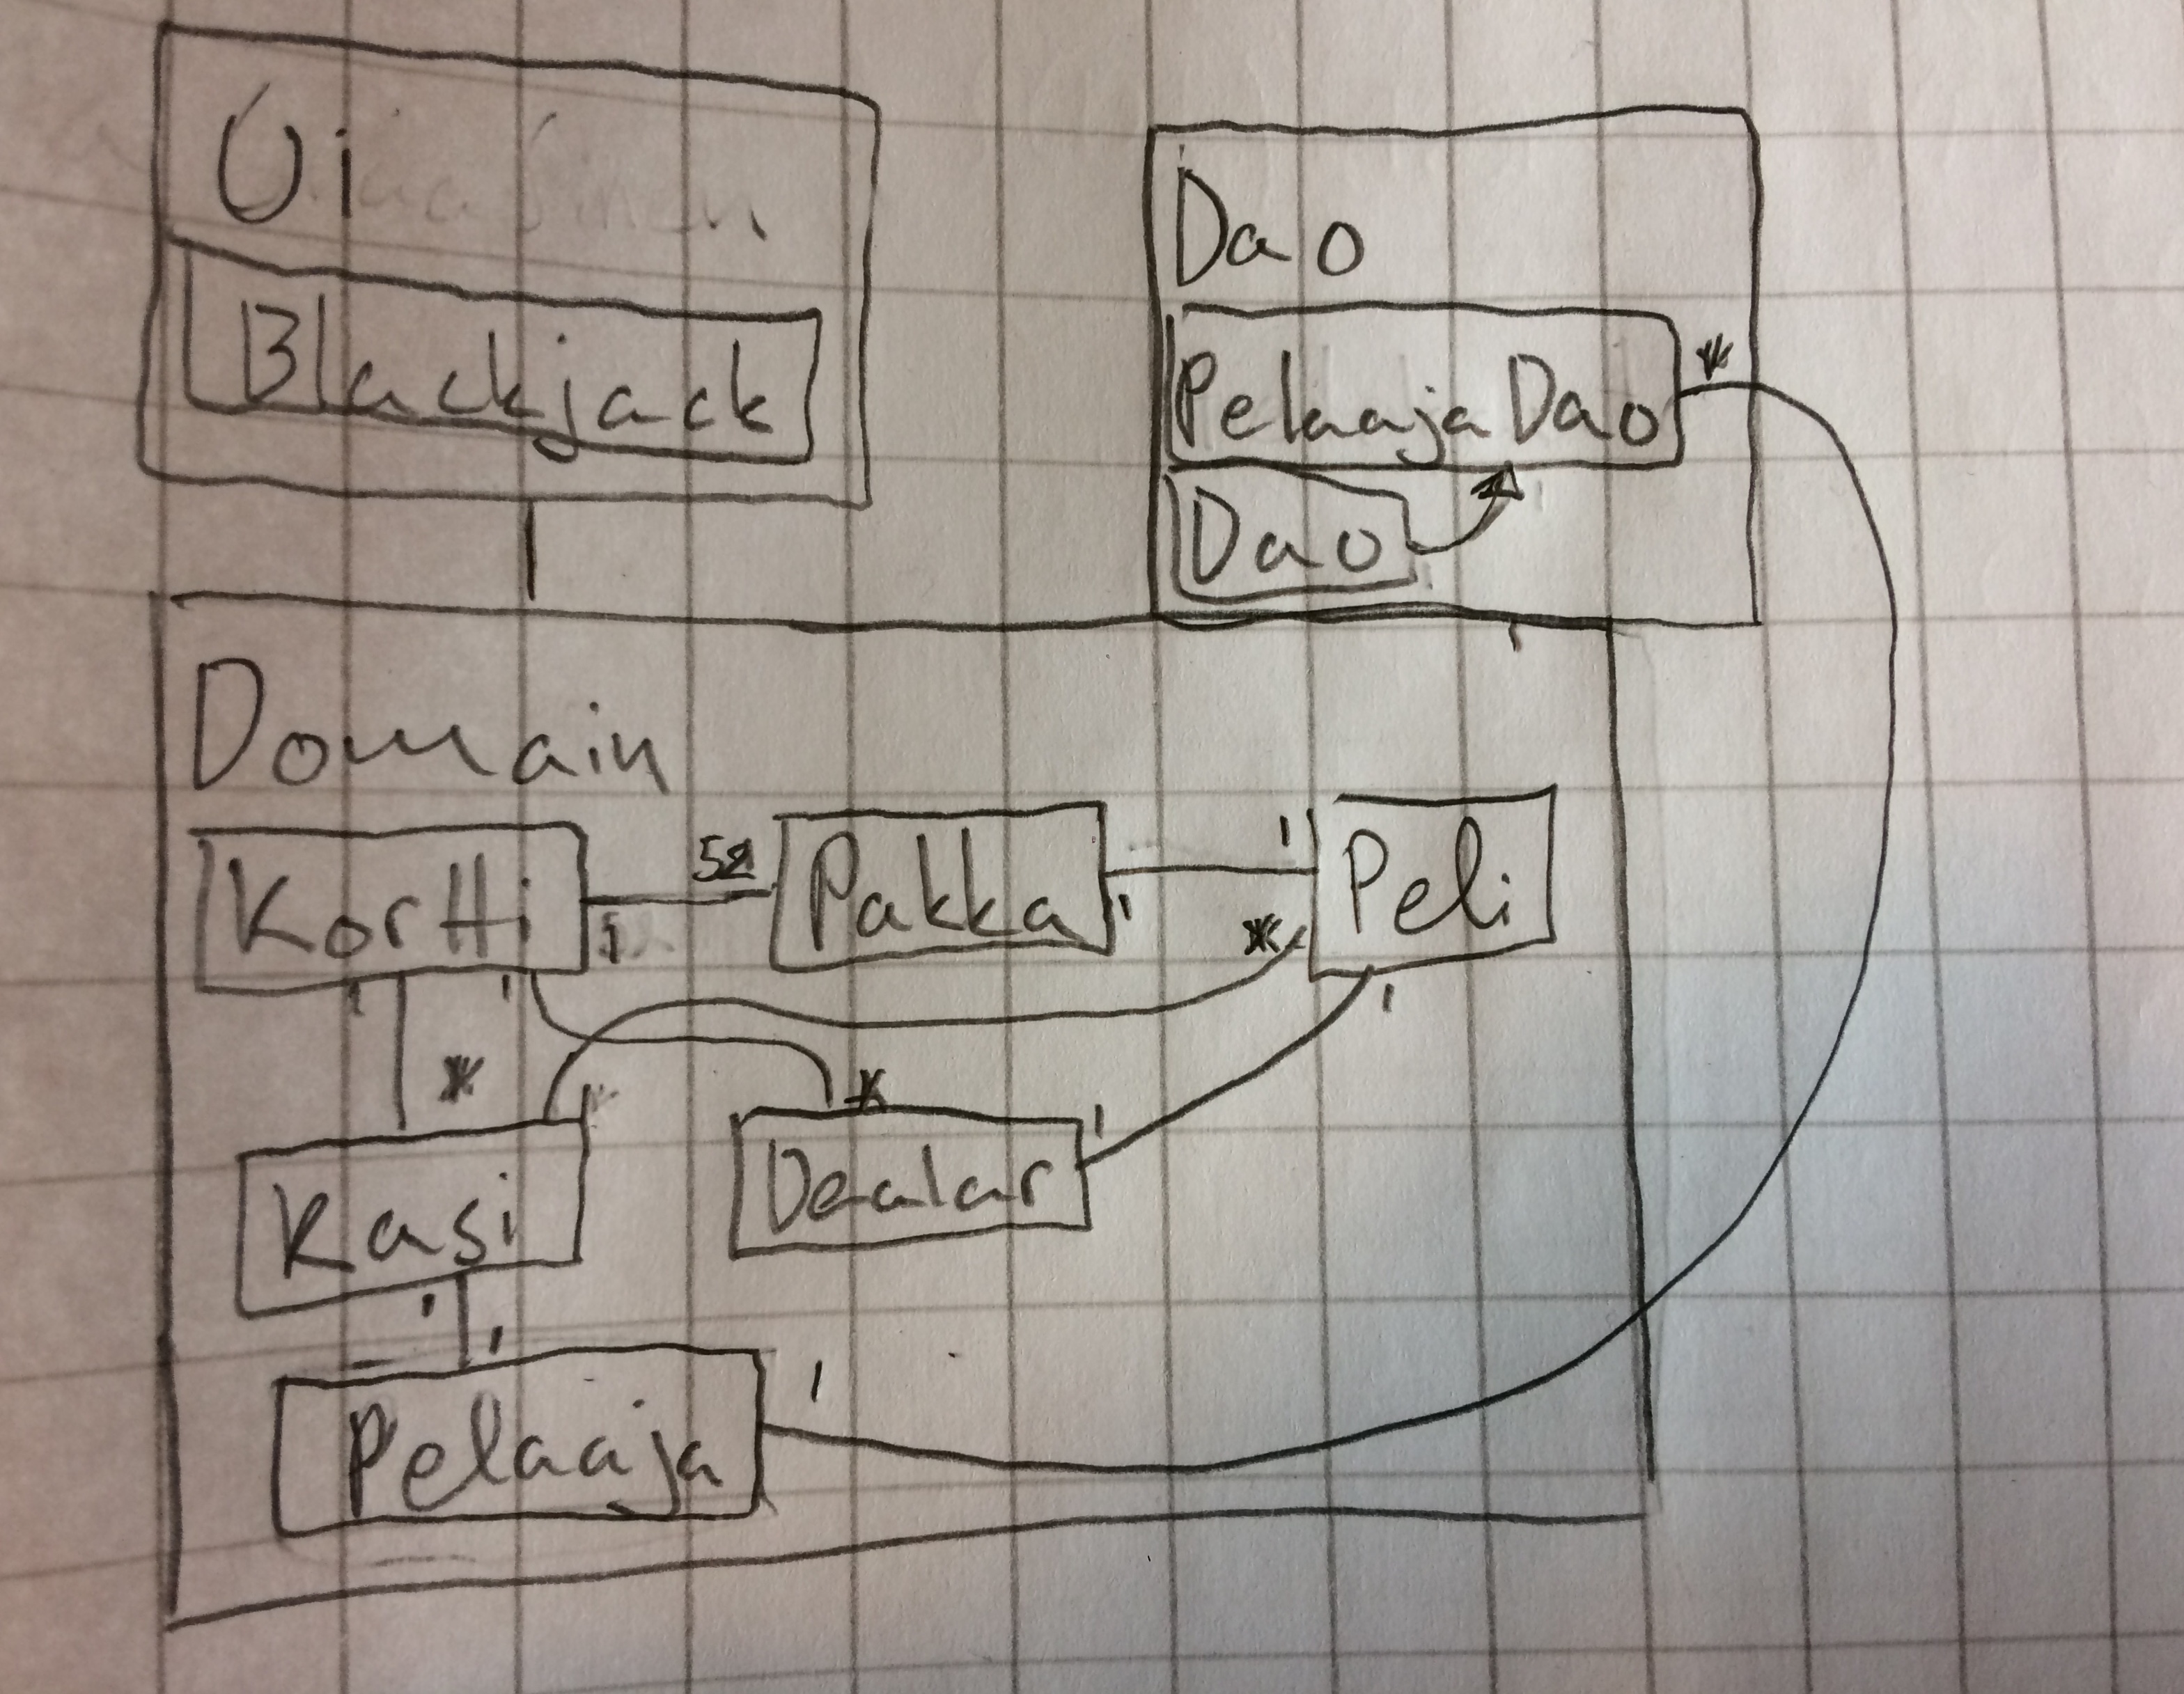 Ui
Blackjack
Dao
PelaajaDao
*
Dao
Domain
Kortti
52
1
Pakka
1
1
Peli
*
1
1
1
*
*
Kasi
Dealar
1
1
1
Pelaaja
1